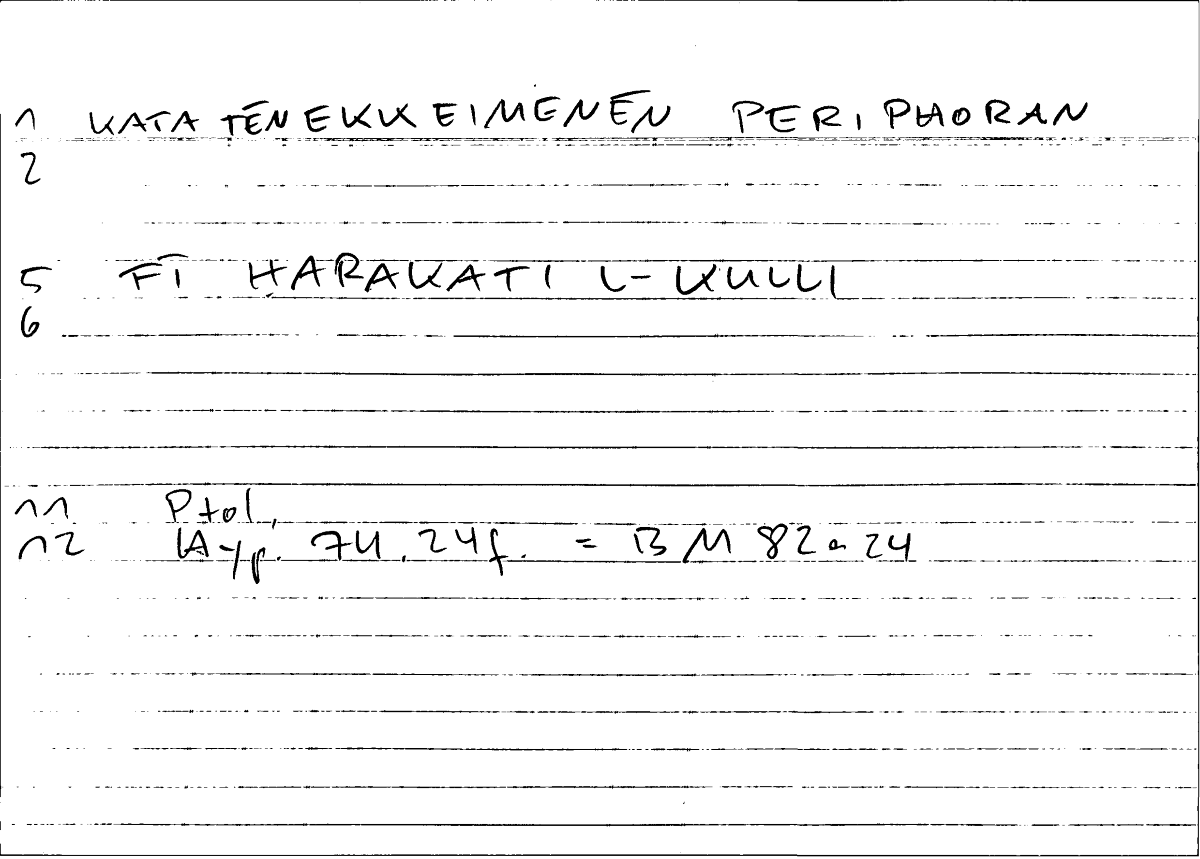 1 KATA TĒN EKKEIMENĒN PERIPHORAN
2
5 FĪ ḤARAKATI L-KULLI
6
11 Ptol.
12 Hyp. 74.24f. = BM 82a24